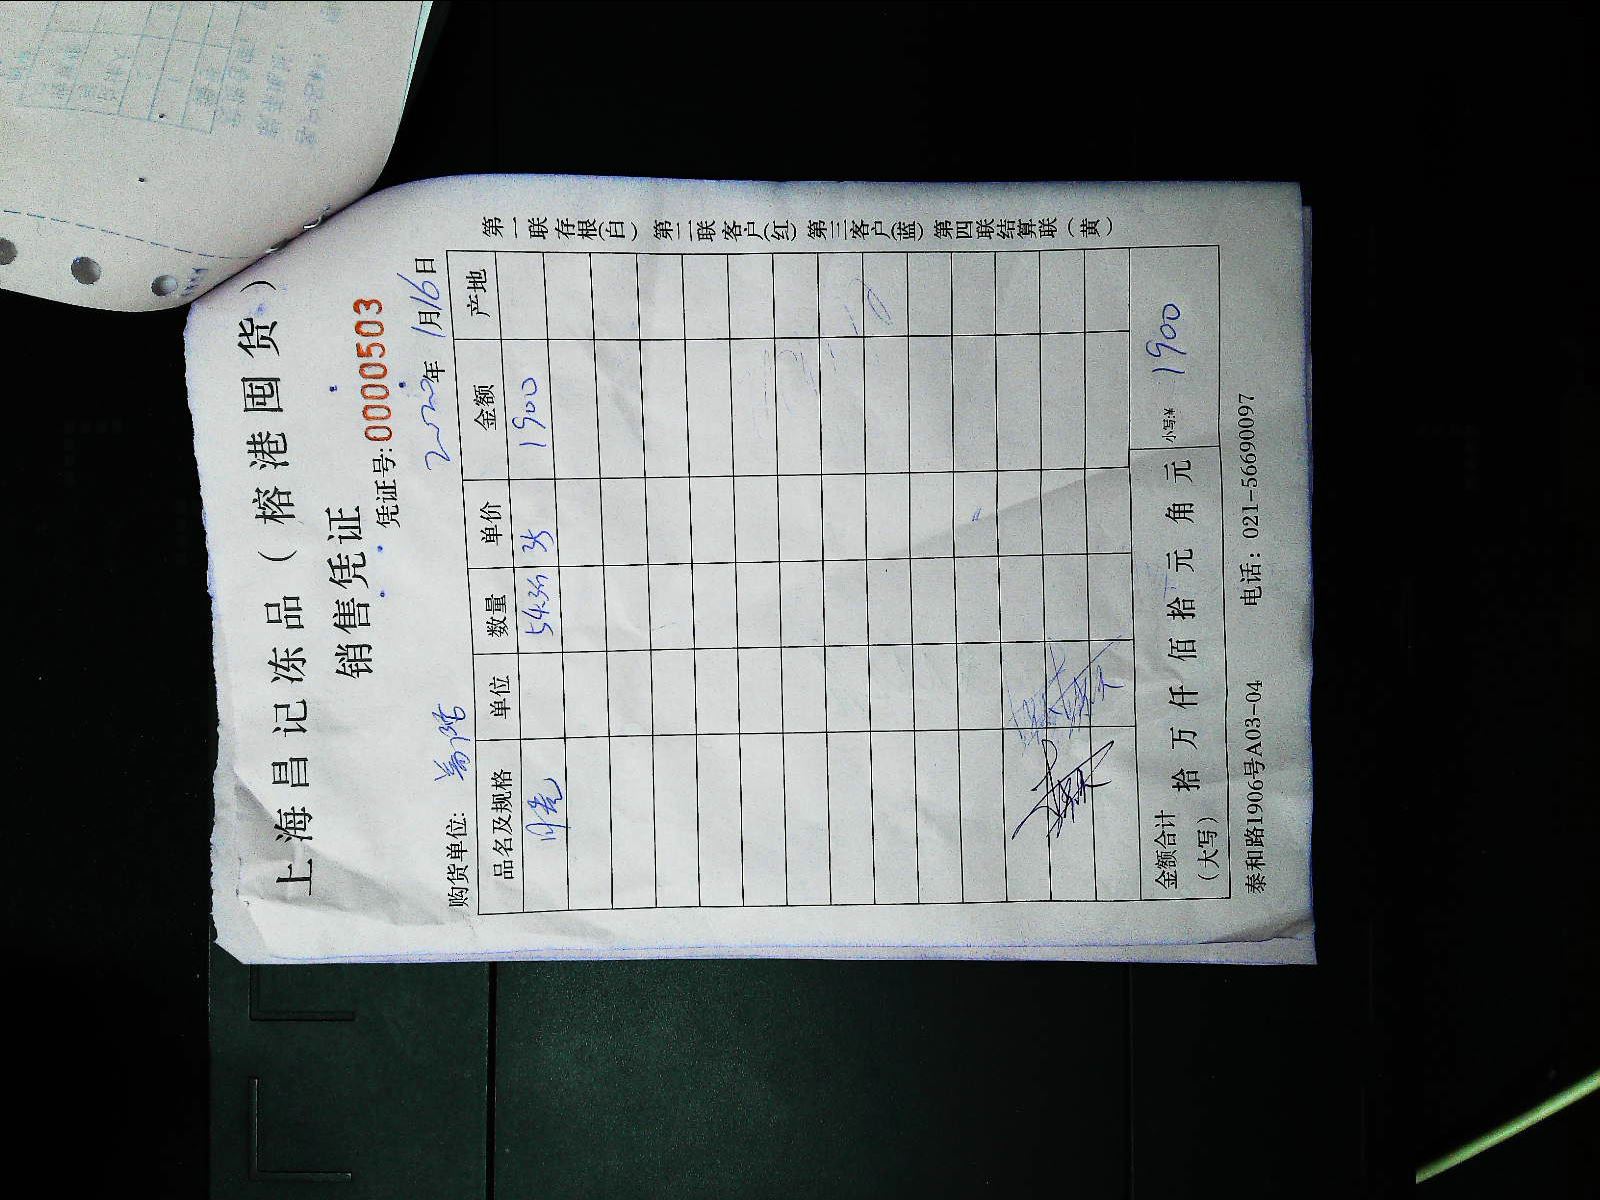 上海昌记冻品（榕港囤货）
销售凭证
凭证号: 0000503
购货单位: 2020年 1月16日
品名及规格 单位 数量 单价 金额 产地
35 1900
金额合计（大写） 拾 万 仟 佰 拾 元 角 元 小写:¥ 1900
泰和路1906号A03-04 电话：021-56690097
第一联存根(白) 第二联客户(红) 第三客户(蓝) 第四联结算联（黄）